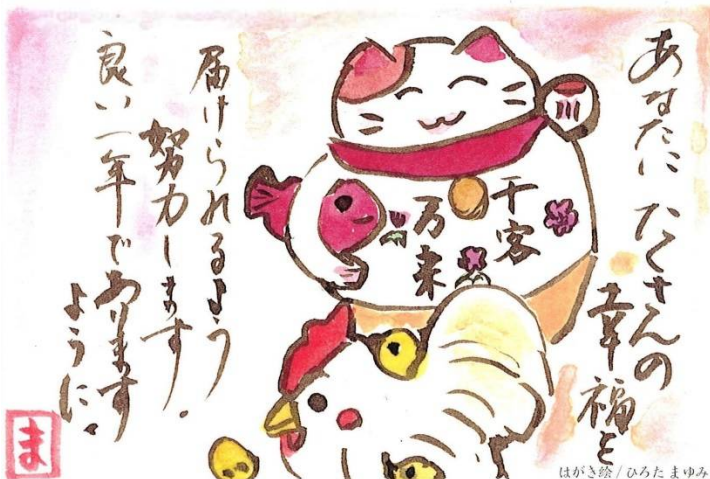 あなたに
たくさんの
幸福を
千客
万来
届けられるよう
努力します。
良い一年であります
ように。
ま
はがき絵/ひろた まゆみ